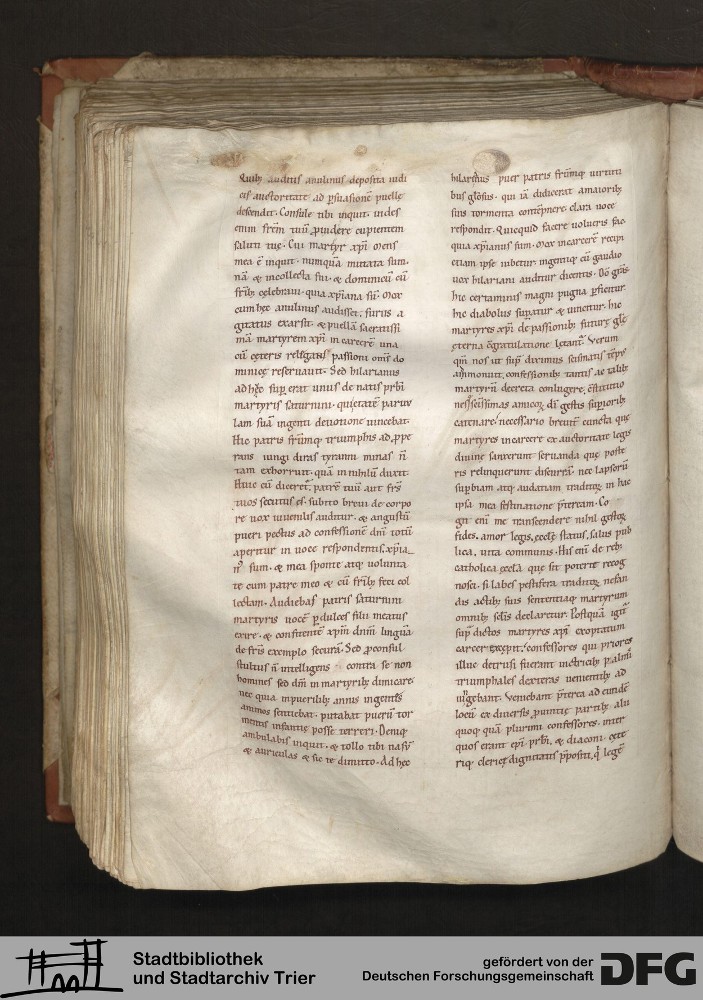 Quib; auditis anulinus deposita iudi
cis auctoritate ad psuasionē puelle
descendit. Consule tibi inquit. uides
enim frēm tuū puidere cupientem
saluti tue. Cui martyr xpi Mens
mea ē inquit. numquā mutata sum.
nā & incollecta fui. & dominicū cū
frīb; celebraui. quia xpiana sū. Mox
cum hęc anulinus audisset. furiis a
gitatus exarsit. & puellā sacratissi
mā martyrem xpi in carcerē una
cū cęteris passioni dō
minicę reseruauit. Sed hilarianus
ad hęc supererat unus de natis prbi
martyris saturnini. qui ętatē paruu
lam suā ingenti deuotione uincebat.
Hic patris frūmq; triumphis ad ppe
rans iungi diras tyranni minas ñ
tam exhorruit. quā in nihilū duxit.
Huic cū diceret. patrē tuū aut frs̄
tuos secutus es. subito breui de corpo
re uox iuuenilis auditur. & angustū
pueri pectus ad confessionē dnī totū
aperitur in uoce respondentis. xpia
n' sum. & mea sponte atq; volunta
te cum patre meo & cū frīb; feci col
lectam. Audiebas patris saturnini
martyris uocē p dulces filii meatus
exire. & confitentē xpm̄ dnm̄ linguā
de frīs exemplo securā. Sed pconsul
stultus ñ intelligens contra se non
homines sed dm̄ in martyrib; dimicare.
nec quia in puerilib; annis ingentes
animos sentiebat. putabat puerū tor
mentis infantię posse terreri. Deniq;
amputabis inquit. & tollo tibi nasū
& auriculas & sic te dimitto. Ad hęc
hilarianus puer patris frūmq; uirtuti
bus glōsus. qui iā didicerat a maiorib;
suis tormenta contēpnere. clara uoce
respondit. Quicquid facere volueris fac.
quia xpianus sum. Mox in carcerē recipi
etiam ipse iubetur ingentiq; cū gaudio
uox hilariani auditur dicentis. Dō grās.
hic certaminis magni pugna pficitur.
hic diabolus supatur & uincitur. hic
martyres xpi de passionib; futurę glę
ęterna cōgratulatione lętant'. Verum
qm̄ nos ut sup diximus scismatis tēpr̄
ammonuit. confessionib; tantis ac talib;
martyrū decreta coniungere. cōstitutio
nes scīssimas amicor dī gestis superiorib;
catenare. necessario breuit' cuncta que
martyres in carcere ex auctoritate legis
diuine sanxerunt seruanda que poste
ris reliquerunt discurrā. nec lapsorū
supbiam atq; audatiam traditor in hac
ipsa mea festinatione ptēream. Co
git enī me transcendere nihil gestor
fides. amor legis. ecclę status. salus pub
lica. uita communis. His enī de reb;
catholica ecclā. que sit poterit recog
nosci. si labes pestifera traditor nefan
dis actib; suis sententiaq; martyrum
omnib; sęlis declaretur. Postquā igit'
sup dictos martyres xpi exoptatum
carcer excepit. confessores qui priores
illuc detrusi fuerant uictricib; palmis
triumphales dexteras uenientib; ad
iungebant. Veniebant pterea ad eundē
locū ex diuersis puintię partib; alii
quoq; quā plurimi confessores. inter
quos erant ep̄i. prb̄i. & diaconi. cęte
riq; clericę dignitatis ppositi. q' legē
Stadtbibliothek
und Stadtarchiv Trier
gefördert von der
Deutschen Forschungsgemeinschaft
DFG